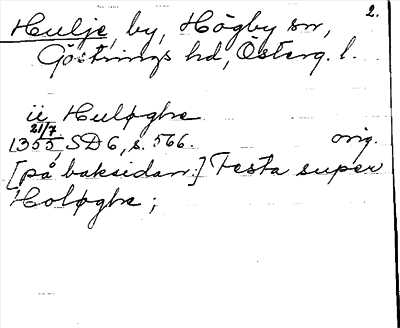 2.
Hulje, by, Högby sn,
Göstrings hd, Österg. l.
ii Huløghe
21/7
1355, SD 6, s. 566. orig.
[på baksidan:] Testa super
Holøghe;